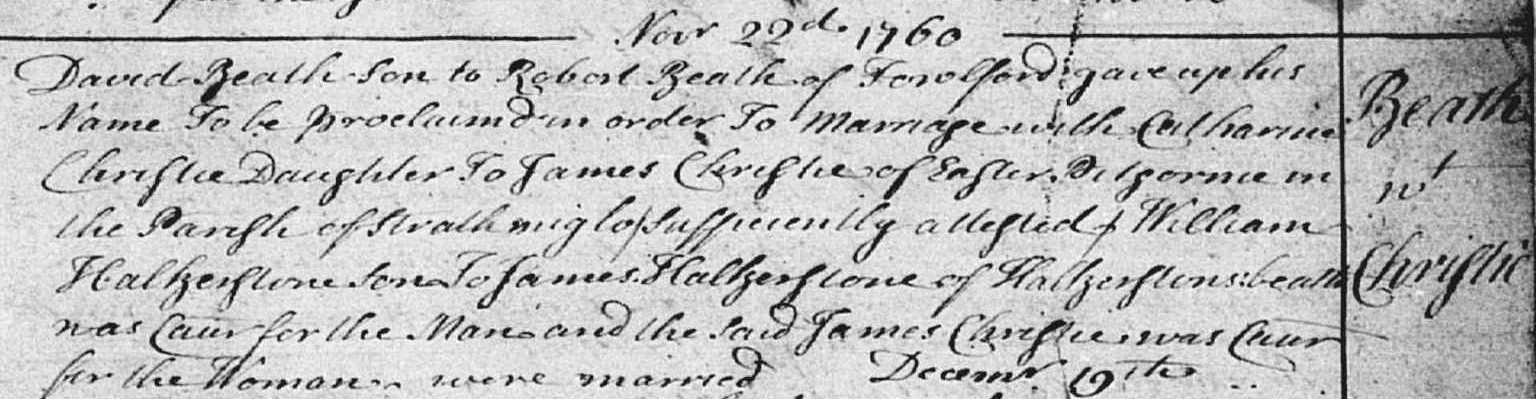 Novr 22d. 1760
David Beath son to Robert Beath of Fowlford gave up his
Name To be proclaimd in order To Marriage with Catharine
Christie Daughter To James Christie of Easter Pitgornie in
the Parish of Strathmiglo/sufficiently attested/William
Halkerstone Son To James Halkerstone of Halkerstons:beath
was Caur for the Man and the said James Christie was Caur
for the Woman were married Decemr. 19th
Beath
wt
Christie